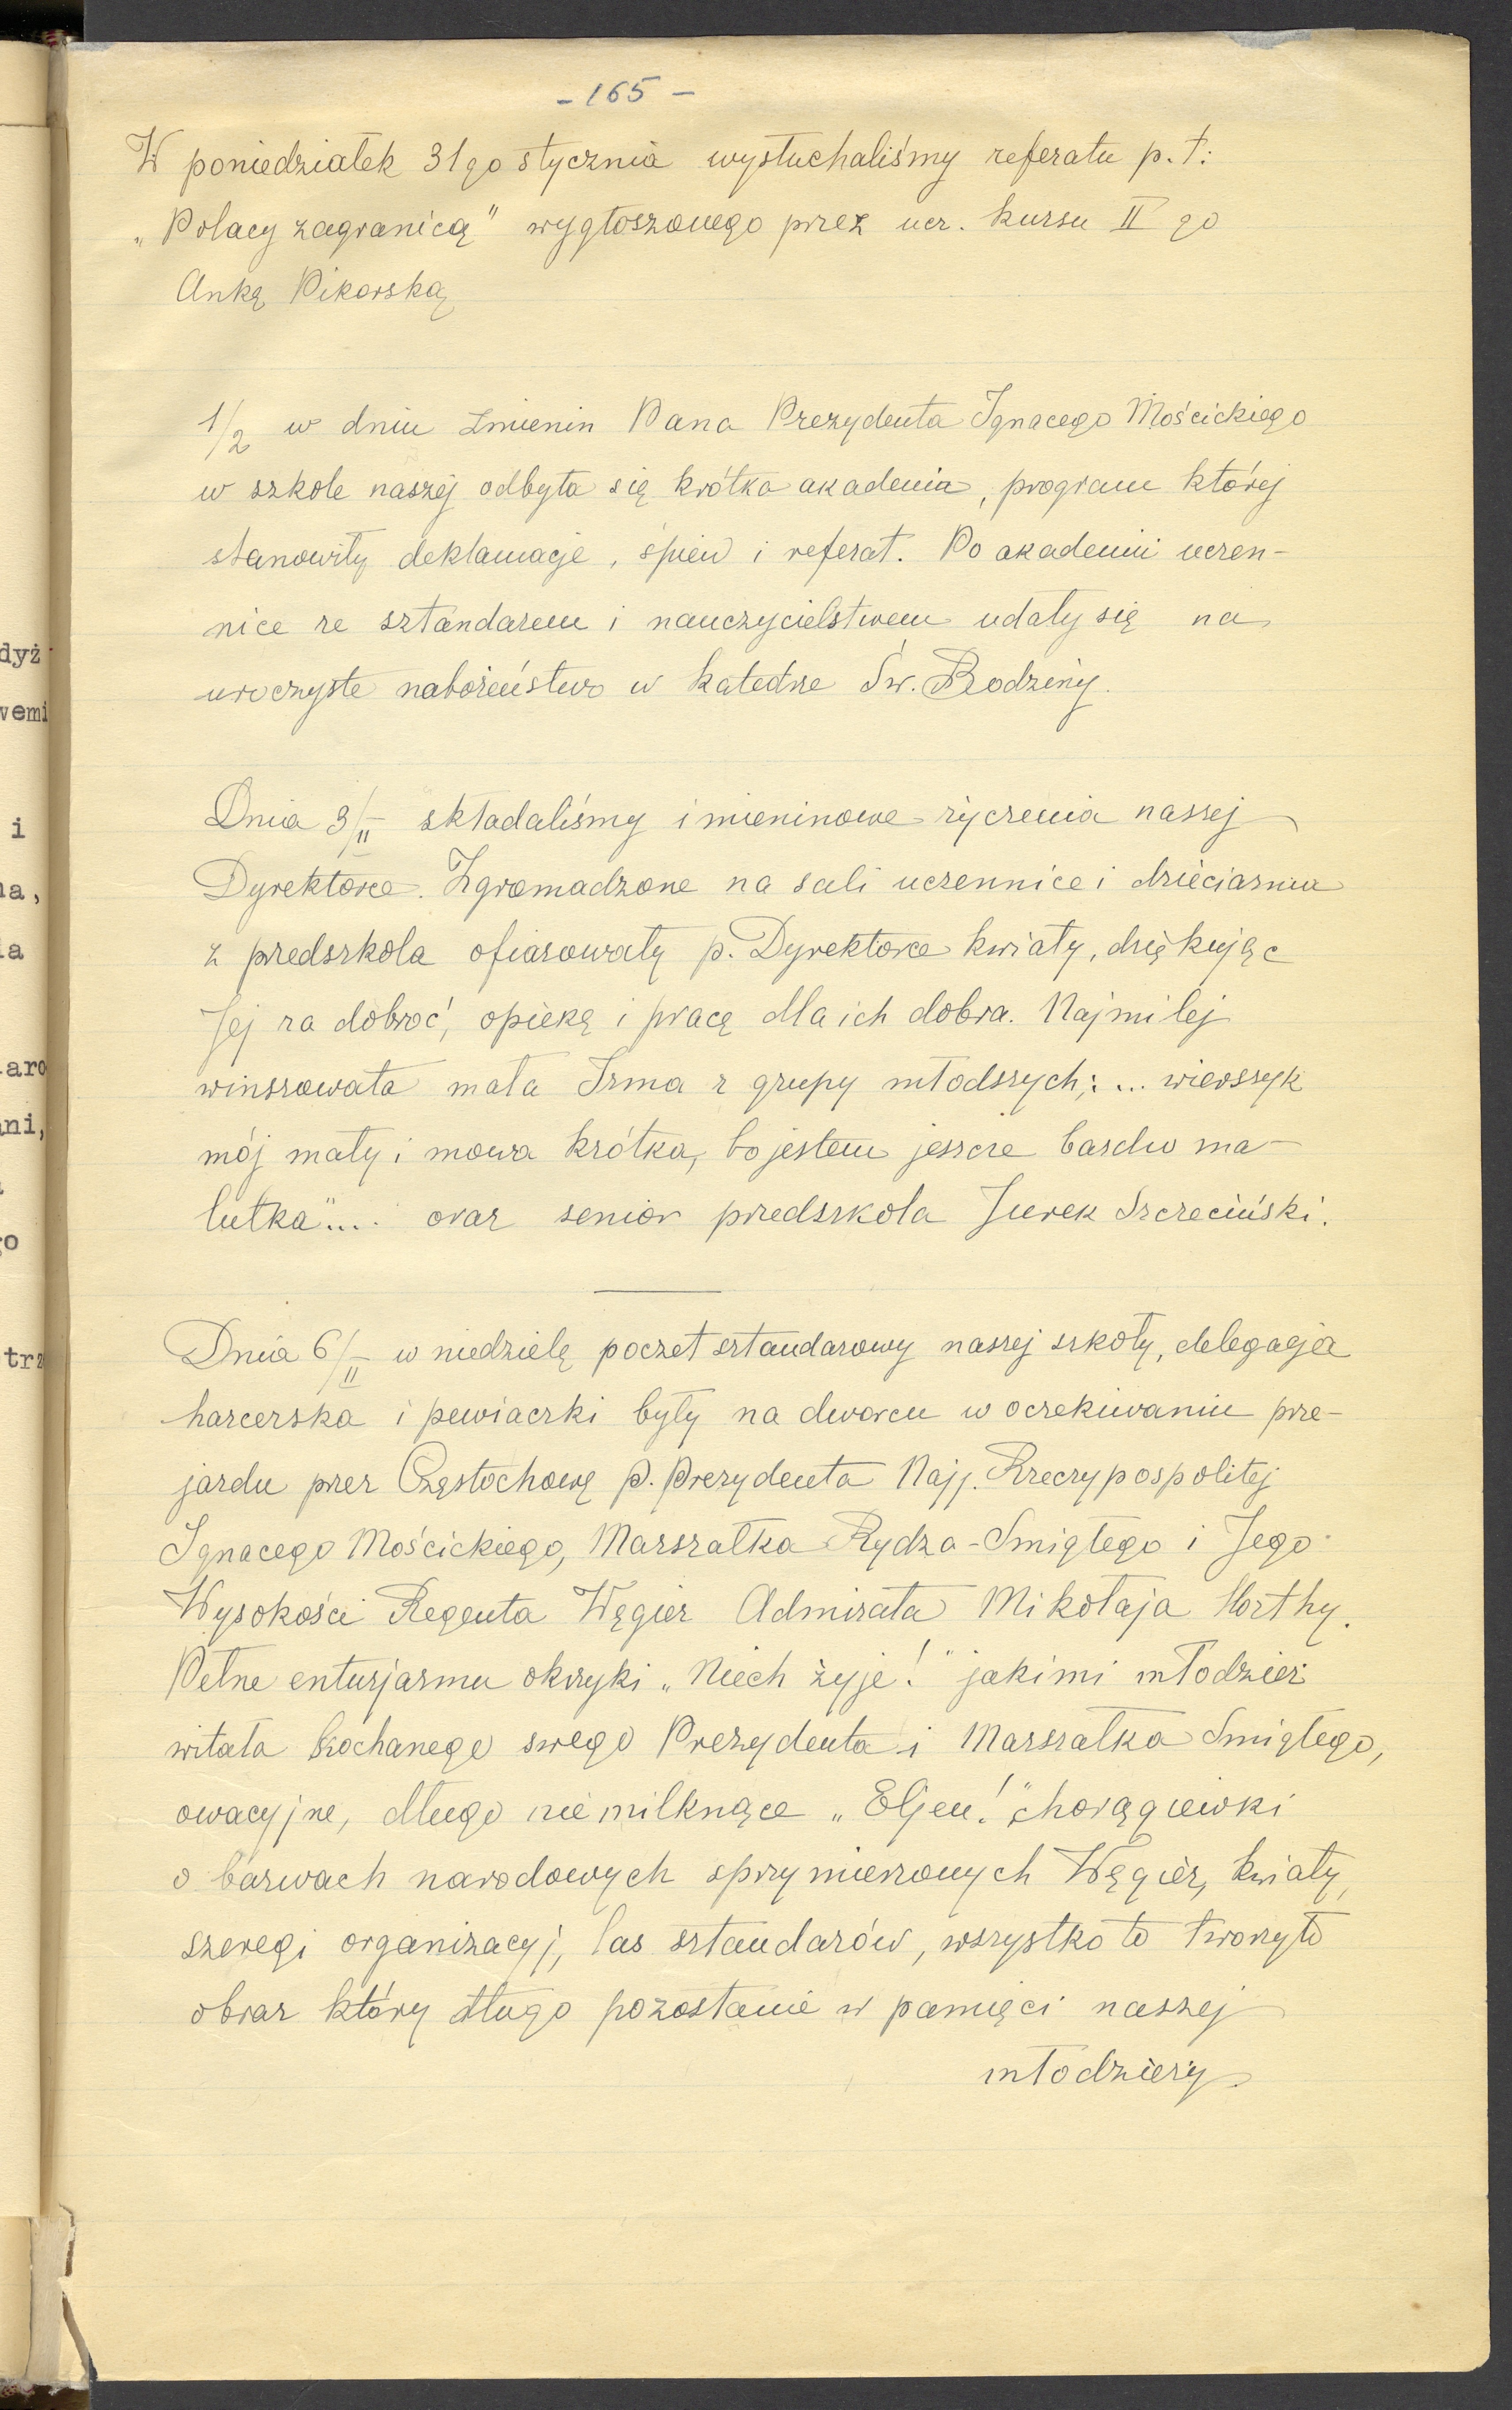 - 165 -
W poniedziałek 31go stycznia wysłuchaliśmy referatu p.t:
„Polacy zagranicą" wygłoszonego przez ucz. kursu II go
Anką Pikorską
1/2 w dniu Imienin Pana Prezydenta Ignacego Mościckiego
w szkole naszej odbyła się krótka akademia, program której
stanowiły deklamacje, śpiew i referat. Po akademii uczen-
nice ze sztandarem i nauczycielstwem udały się na
uroczyste nabożeństwo w katedrze Św. Rodziny.
Dnia 3/II składaliśmy imieninowe życzenia naszej
Dyrektorce. Zgromadzone na sali uczennice i dzieciarnia
z przedszkola ofiarowały p. Dyrektorce kwiaty, dziękując
Jej za dobroć, opiekę i pracę dla ich dobra. Najmilej
winszowała mała Irma z grupy młodszych; ... wierszyk
mój mały i mowa krótka, bo jestem jeszcze bardzo ma-
lutka".... oraz senior przedszkola Jurek Szczeciński.
Dnia 6/II w niedzielę poczet sztandarowy naszej szkoły, delegacja
harcerska i pewiaczki były na dworcu w oczekiwaniu prze-
jazdu przez Częstochowę P. Prezydenta Najj. Rzeczypospolitej
Ignacego Mościckiego, Marszałka Rydza-Smigłego i Jego
Wysokości Regenta Węgier Admirała Mikołaja Horthy.
Pełne enturjazmu okrzyki „Niech żyje!" jakimi młodzież
witała kochanego swego Prezydenta i Marszałka Smigłego,
owacyjne, długo niemilknące „Eljen!" chorągiewki
o barwach narodowych sprzymierzonych Węgier, kwiaty,
szeregi organizacyj, las sztandarów, wszystko to tworzyło
obraz który długo pozostanie w pamięci naszej
młodzieży
dyż
wemi
i
na,
ia
aro
ani,
go
trz